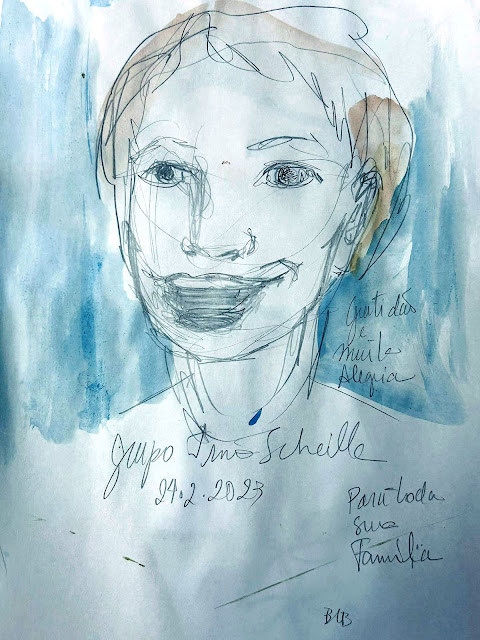 Gratidão
e
Muita
Alegria
Grupo Tino Scheilla
24.2.2023
Para toda
sua
Família